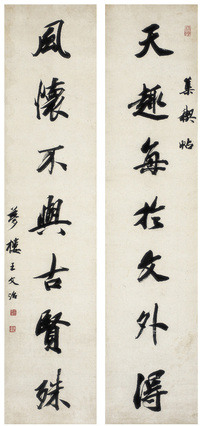 天趣每於文外得
集禊帖
風懷不與古賢殊
夢樓王文治